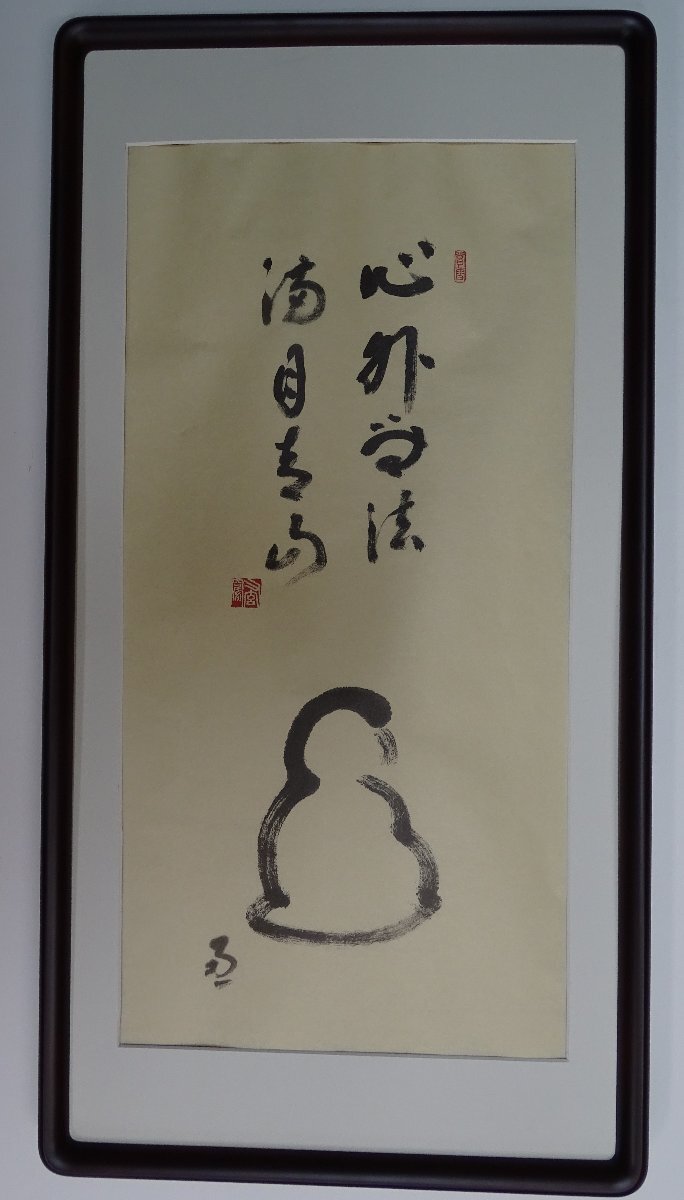 心外無法
滿目青山